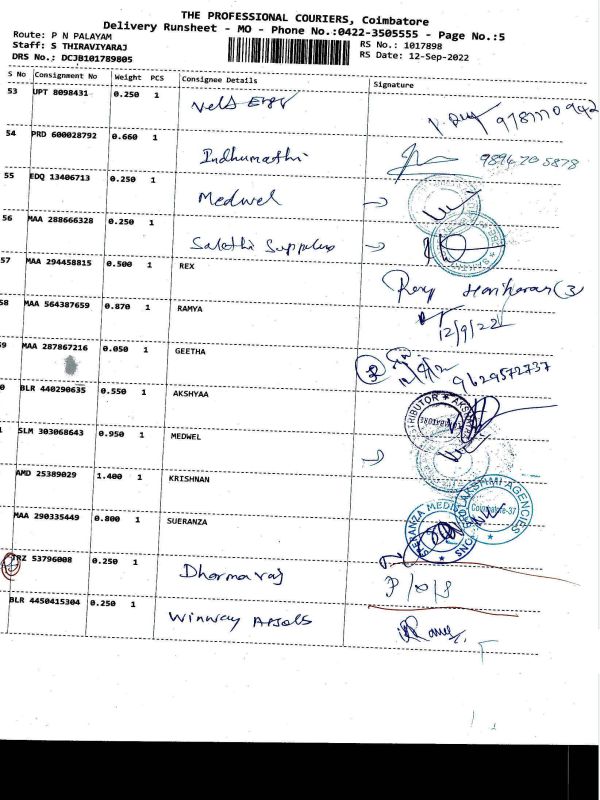 THE PROFESSIONAL COURIERS, Coimbatore
Delivery Runsheet - MO - Phone No.:0422-3505555 - Page No.:5
Route: P N PALAYAM
Staff: S THIRAVIYARAJ RS No.: 1017898
DRS No.: DCJB101789805 RS Date: 12-Sep-2022
S No Consignment No Weight PCS Consignee Details Signature
53 UPT 8098431 0.250 1
54 PRD 600028792 0.660 1 Indhumathi 9894705878
55 EDQ 13406713 0.250 1 Medwel
56 MAA 288666328 0.250 1 Sakthi
57 MAA 294458815 0.500 1 REX Hariharan
58 MAA 564387659 0.870 1 RAMYA 12/9/22
9 MAA 287867216 0.050 1 GEETHA 9629572737
0 BLR 440290635 0.550 1 AKSHYAA
SLM 303068643 0.950 1 MEDWEL
AMD 25389029 1.400 1 KRISHNAN
MAA 290335449 0.800 1 SUERANZA Coimbatore-37
53796008 0.250 1 Dharmaraj
BLR 4450415304 0.250 1 Winway